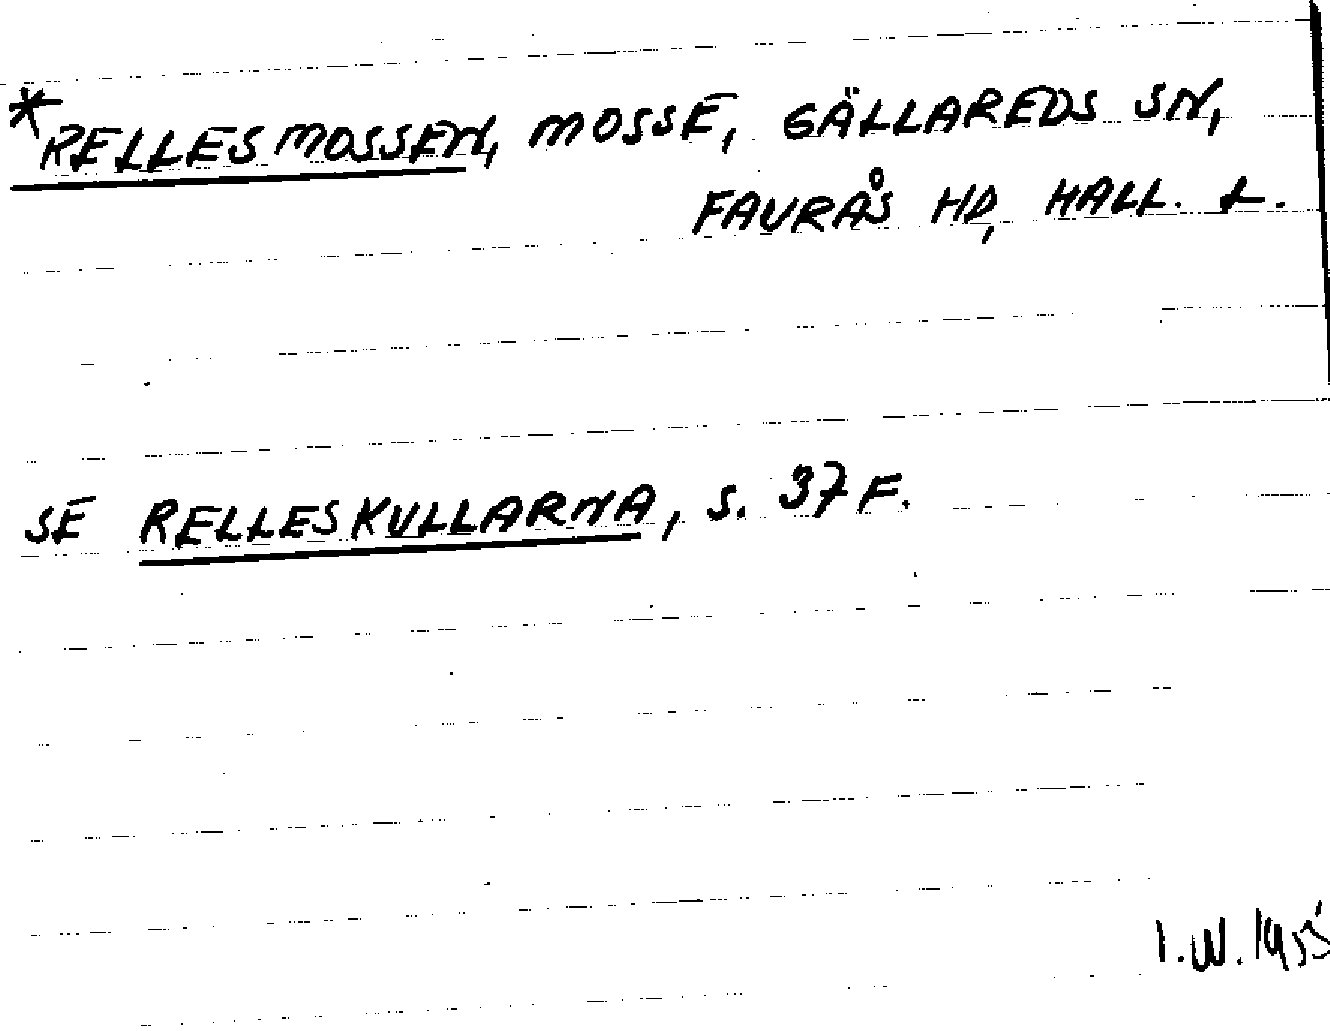 *RELLESMOSSEN, MOSSE, GÄLLAREDS SN,
FAURÅS HD, HALL. L.
SE RELLESKULLARNA, S. 37 F.
I.W. 1955